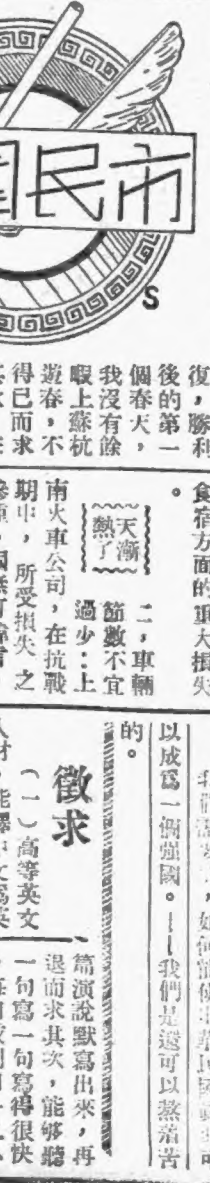 市民
S
復，勝利
後的第一
個春天，
我沒有餘
暇上蘇杭
遊春，不
得已而求
食宿方面的重大損失
。
天漸
熱了
二，車輛
節數不宜
過少：上
南火車公司，在抗戰
期中，所受損失之
慘重，固無可諱言
以成爲一個强國。——我們是還可以熬着苦
的。
徵求
（一）高等英文
人材，能譯中文爲英
篇演說默寫出來，再
退而求其次，能够聽
一句寫一句寫得很快